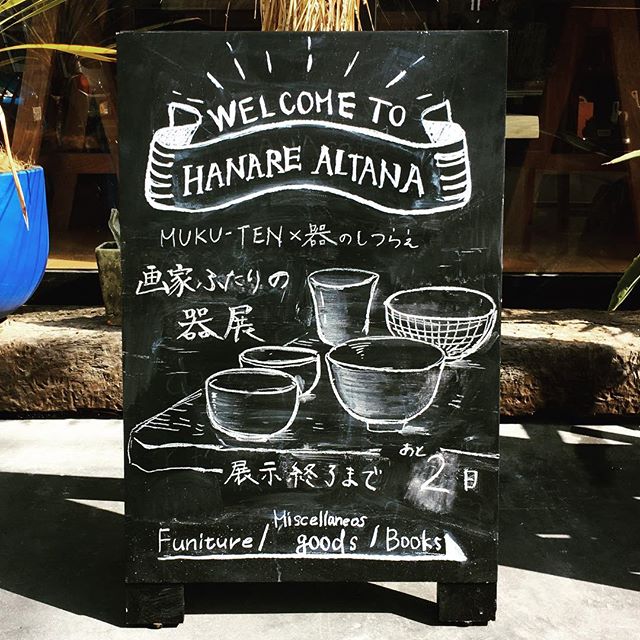 WELCOME TO
HANARE ALTANA
MUKU-TEN×器のしつらえ
画家ふたりの
器展
展示終了まで あと2日
Miscellaneos
Funiture / goods / Books